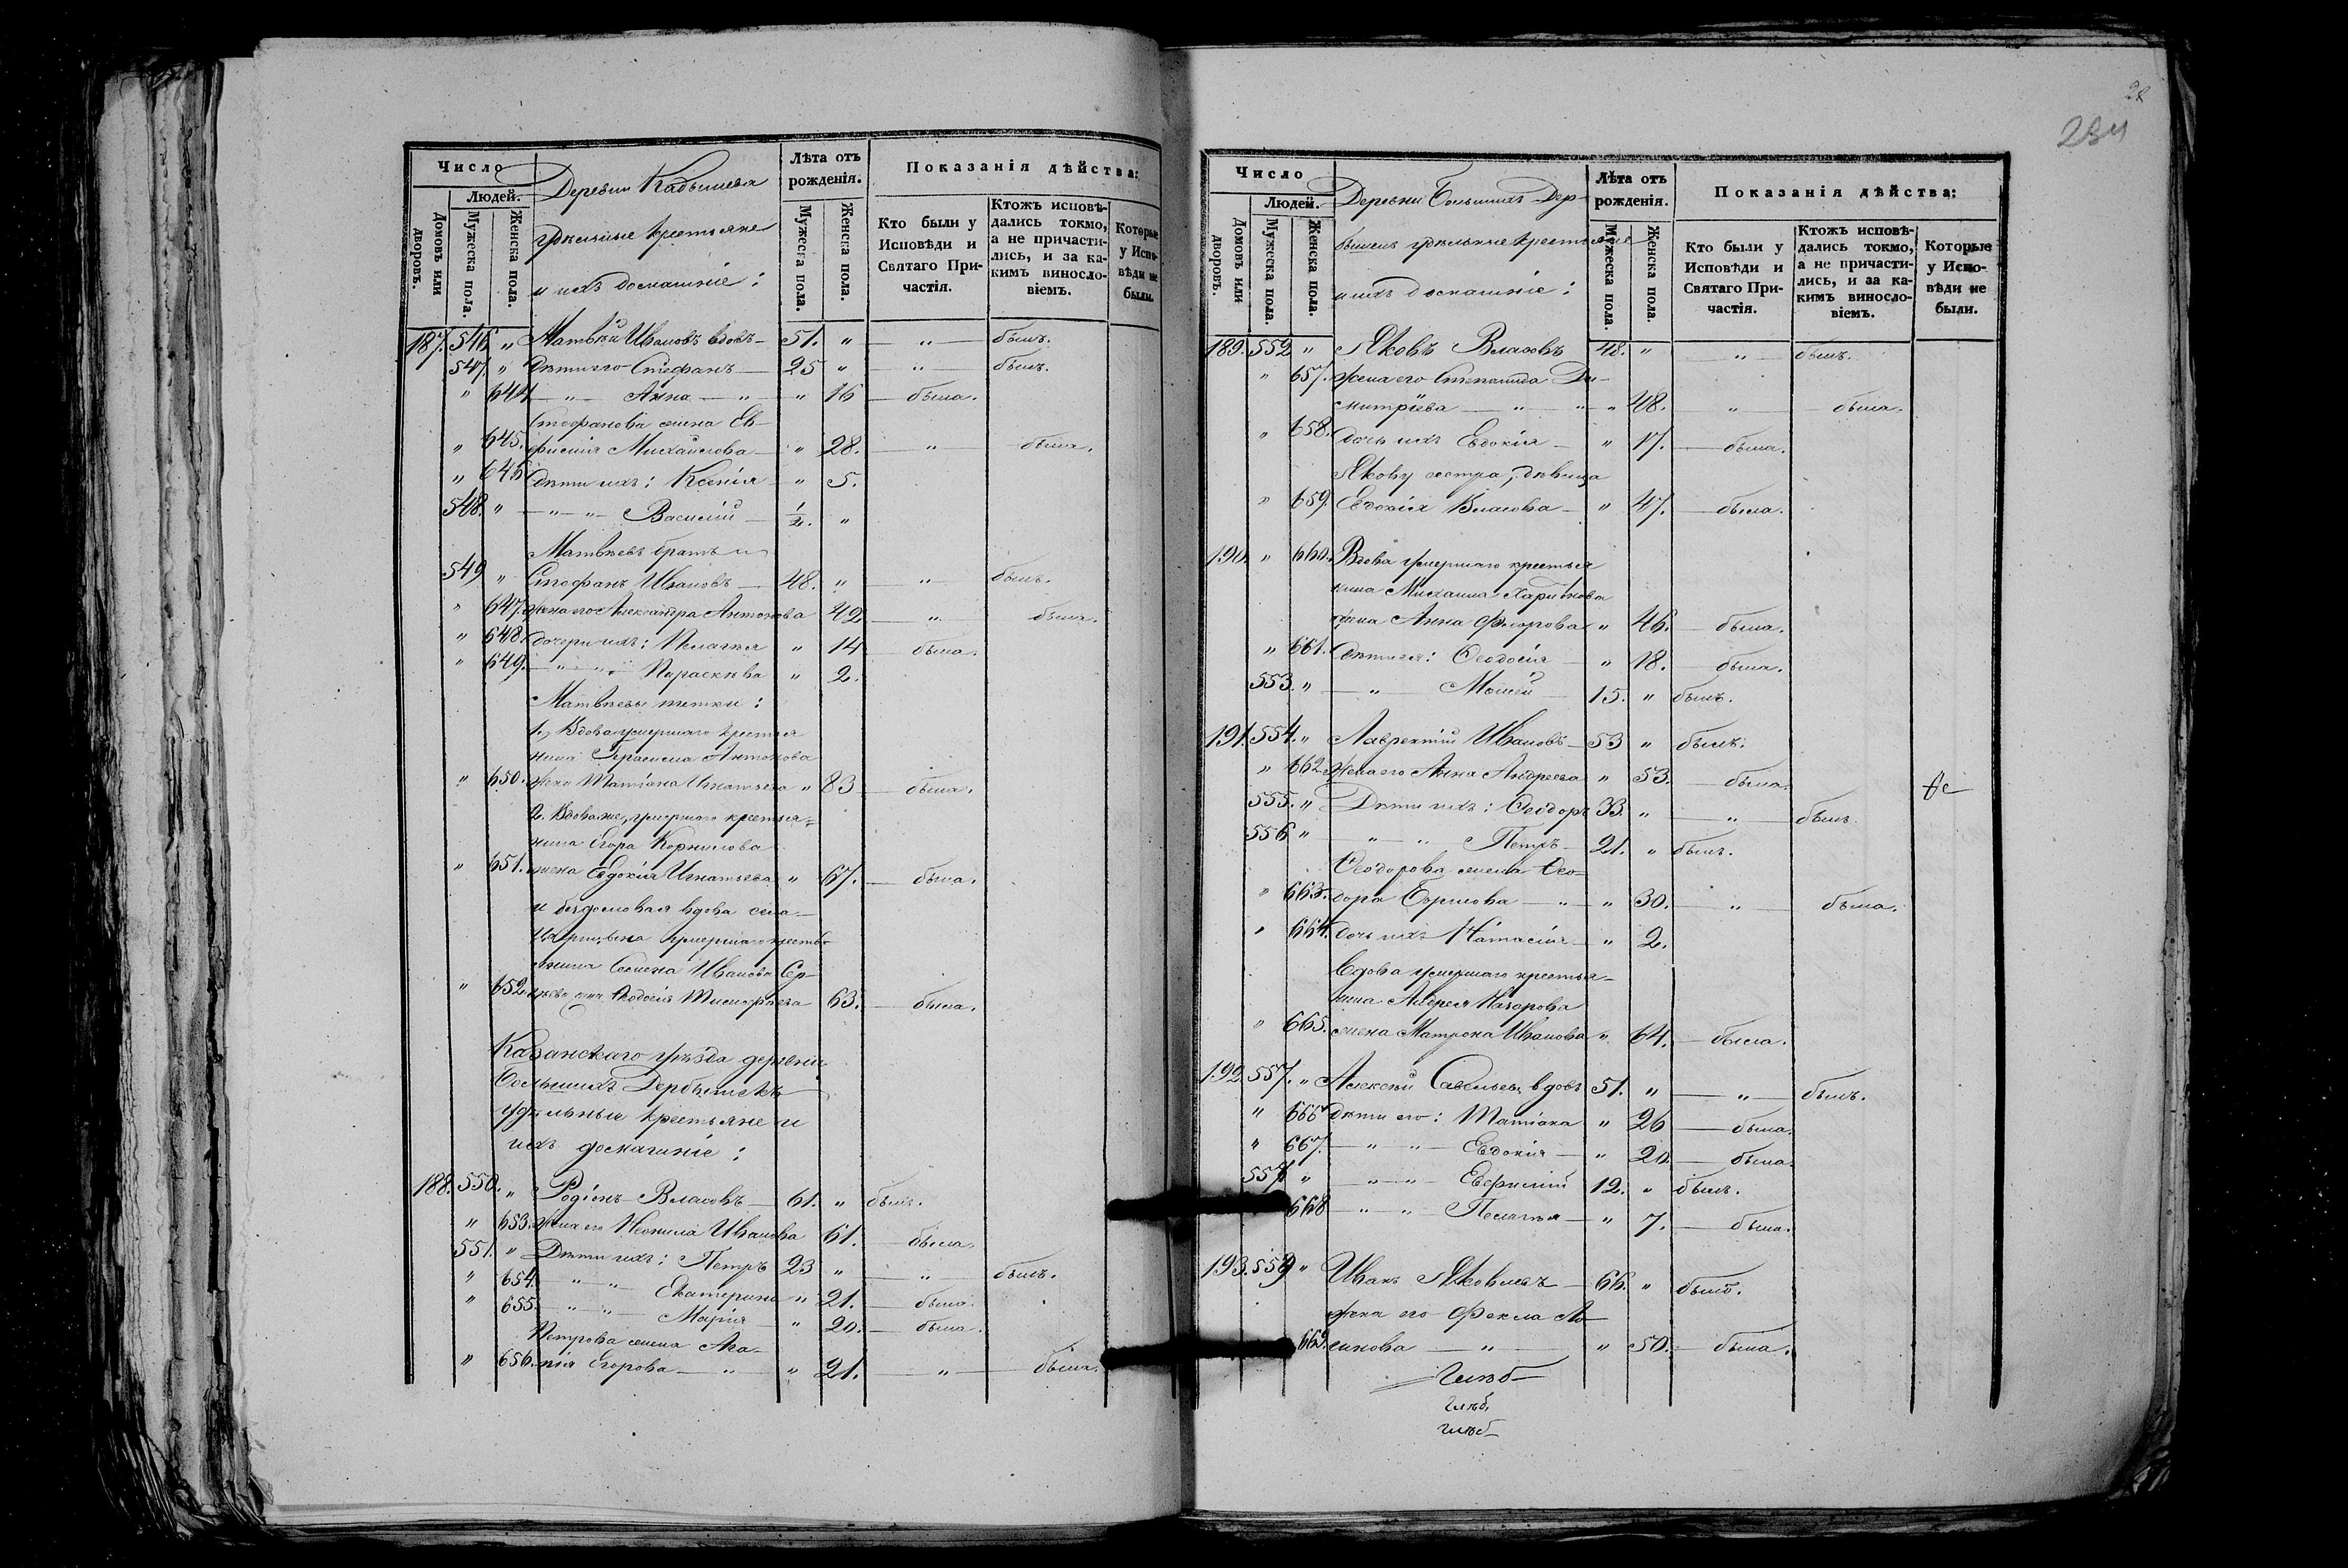 Число
Людей.
Домовъ или дворовъ.
Мужеска пола.
Женска пола.
Деревни Кадышева
удѣльные крестьяне
и ихъ домашніе:
Лѣта отъ рожденія.
Мужеска пола.
Женска пола.
Показанія дѣйства:
Кто были у Исповѣди и Святаго Причастія.
Ктожъ исповѣдались токмо, а не причастились, и за какимъ винословіемъ.
Которые у Исповѣди не были.
187. 546 „ Матвѣй Ивановъ вдовъ — 51. „ — „ — былъ.
547. „ Дѣти его Стефанъ — 25 „ — „ — былъ.
„ 644 — „ — Анна — „ — „ 16 — была.
Стефанова жена Ев-
„ 645. фимія Михайлова — „ 28. — „ — была.
„ 646 Дѣти ихъ: Ксенія „ 5.
548. „ — „ — „ — Василій — 1/2. „
Матвѣевъ братъ
549 „ Стефанъ Ивановъ — 48. „ — „ — былъ.
„ 647. жена его Александра Антонова 42 — „ — была.
„ 648. дочери ихъ: Пелагія „ 14 — была.
„ 649. — „ — „ — Параскева „ 2.
Матвѣевы тетки:
1., Вдова умершаго крестья
нина Герасима Антонова
„ 650. жена Татіана Игнатьева „ 83 — была.
2. Вдова же, умершаго крестья-
нина Егора Корнилова
„ 651. жена Евдокія Игнатьева „ 67. — была.
и бездомовая вдова
умершаго кресть-
янина Семена Иванова Сер-
„ 652. жена Феодосія 63. — была.
Казанскаго уѣзда деревни
Большихъ Дербышекъ
удѣльные крестьяне и
ихъ домашніе:
188. 550. „ Родіонъ Власовъ — 61. „ былъ.
„ 653. Жена его Неонила Иванова 61. — была.
551. „ Дѣти ихъ: Петръ 23 „ — „ — былъ.
„ 654. „ — „ — Екатерина „ 21. — была.
„ 655. — „ — „ — Марія — „ 20. — была.
Петрова жена Ага-
„ 656. пія Егорова — „ — „ 21. — „ — была.
28
234
Число
Людей.
Домовъ или дворовъ.
Мужеска пола.
Женска пола.
Деревни Большихъ Дер-
бышекъ удѣльные крестьяне
и ихъ домашніе:
Лѣта отъ рожденія.
Мужеска пола.
Женска пола.
Показанія дѣйства:
Кто были у Исповѣди и Святаго Причастія.
Ктожъ исповѣдались токмо, а не причастились, и за какимъ винословіемъ.
Которые у Исповѣди не были.
189. 552 „ Яковъ Власовъ 48. „ „ — былъ.
„ 657. жена его Степанида Ди-
митріева — „ — „ — „ 48. „ — была.
„ 658. дочь ихъ Евдокія — „ 17. — была.
Якову сестра, дѣвица
„ 659. Евдокія Власова — „ 47. — была.
190. „ 660. Вдова умершаго крестья
нина Михаила Харитонова
жена Анна Флорова „ 46. — была.
„ 661. Дѣти ея: Феодосія — „ 18. — была.
553. „ — „ — Моисей — 15. „ былъ.
191. 554. „ Лаврентій Ивановъ — 53 „ былъ.
„ 662. Жена его Анна Андреева „ 53. — была.
555. „ Дѣти ихъ: Феодоръ 33. „ — „ — былъ.
556 „ „ — „ — Петръ — 21. „ былъ.
Феодорова жена Фео-
„ 663. дора Борисова — „ — „ 30. — „ — была.
„ 664. дочь ихъ Натасія — „ 2.
Вдова умершаго крестья-
нина Андрея Назарова
„ 665. жена Матрона Иванова „ 64. — была.
192. 557. „ Алексѣй Савельевъ вдовъ 51. „ — „ — былъ.
„ 666 Дѣти его: Татіана „ 26 — была.
„ 667. — „ — „ — Евдокія — „ 20. — была.
557 „ — „ — „ — Евфимій 12. „ былъ.
668 — „ — „ — Пелагія — „ 7. — была.
193. 559 „ Иванъ Яковлевъ — 66. „ былъ.
жена его Фекла Ло-
669. гинова — „ — „ 50. — была.